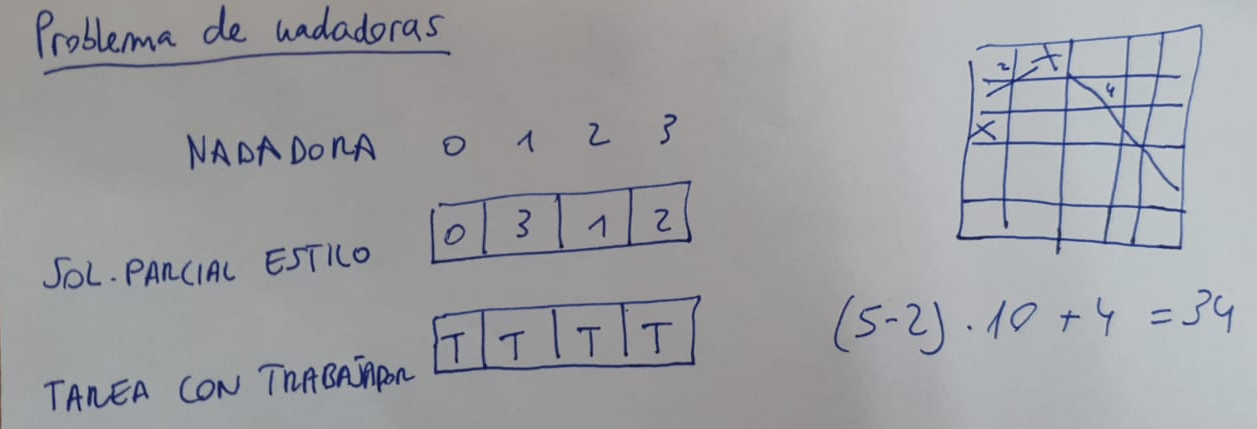 Problema de nadadoras
NADADORA 0 1 2 3
SOL. PARCIAL ESTILO 0 3 1 2
TAREA CON TRABAJADOR T T T T
2 X
4
X
(5-2) · 10 + 4 = 34